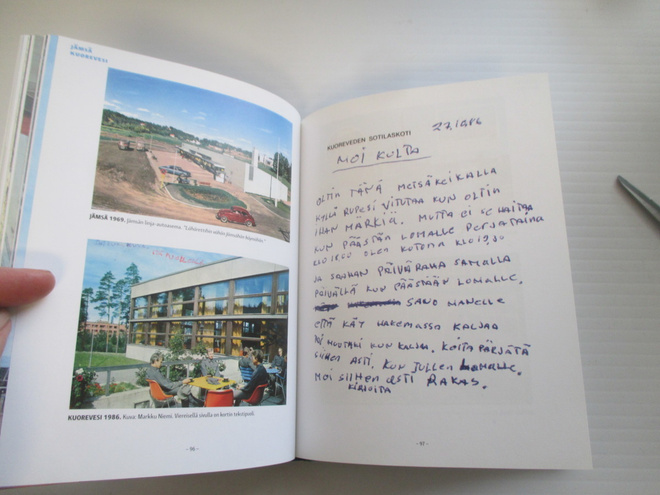 JÄMSÄ
KUOREVESI
JÄMSÄ 1969. Jämsän linja-autoasema.
KUOREVESI 1986. Kuva: Markku Niemi. Viereisellä sivulla on kortin tekstipuoli.
- 96 -
KUOREVEDEN SOTILASKOTI
MOI KULTA
OLTIIN TÄSSÄ METSÄKEIKALLA
KYLLÄ RUPESI VITUTAA KUN OLTIIN
IHAN MÄRKIÄ. MUTTA EI SE HAITAA
KUN PÄÄSTÄÄN LOMALLE PERJATAINA
KLO OLEN KOTONA KLO
JA SAAHAN PÄIVÄRAHA SAMALLA
PÄIVÄLLÄ KUN PÄÄSTÄÄN LOMALLE.
SANO
ETTÄ KÄY HAKEMASSA KALJAA
MUUTAKI KUN KALJA. KOITA PÄRJÄTÄ
SIIHEN ASTI. KUN TULLEN LOMALLE.
MOI SIIHEN ASTI RAKAS.
KIRJOITA
- 97 -